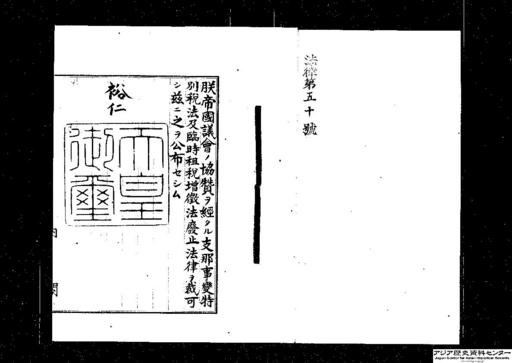 法律第五十號
朕帝國議會ノ協贊ヲ經タル支那事變特
別税法及臨時租税增徵法廢止法律ヲ裁可
シ茲ニ之ヲ公布セシム
裕仁
天皇
御璽
内閣
アジア歴史資料センター
Japan Center for Asian Historical Records